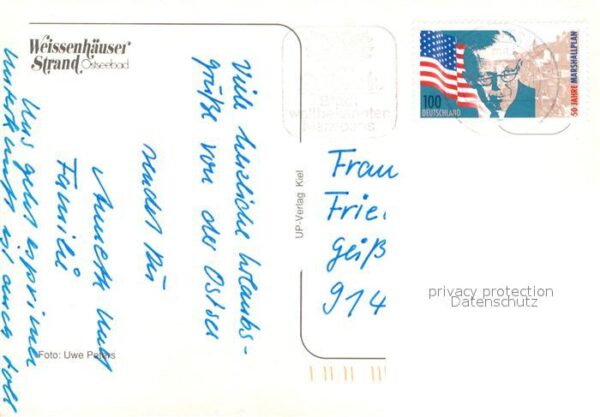 Weissenhäuser
Strand Ostseebad
Viele herzliche Urlaubs-
grüße von der Ostsee
sendet Dir
Annett und
Familie
Uns geht es prima
Unterkunft ist auch toll
Foto: Uwe Peters
UP-Verlag Kiel
100
DEUTSCHLAND
50 JAHRE MARSHALLPLAN
weltbekannten
Marzipans
Frau
Frie
Geiß
914
privacy protection
Datenschutz